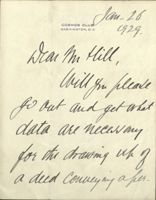 Jan-26
COSMOS CLUB
WASHINGTON, D.C.
1929.
Dear Mr Hill,
Will you please
go out and get what
data are necessary
for the drawing up of
a deed conveying a per-